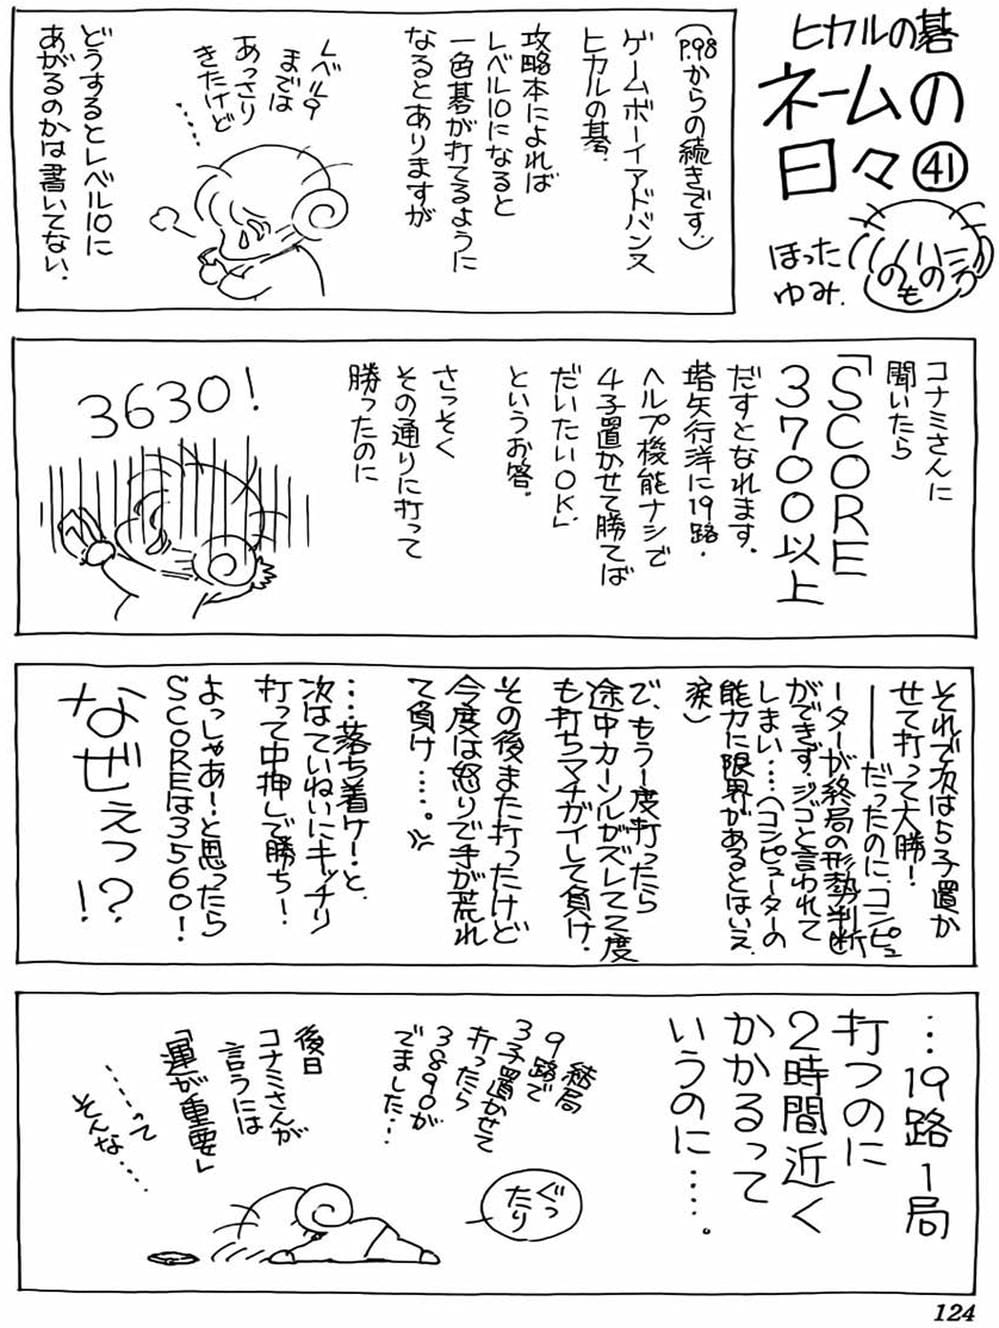 ヒカルの碁
ネームの
日々㊶
ほった
ゆみ.
(P.98からの続きです.)
ゲームボーイアドバンス
ヒカルの碁.
攻略本によれば
レベル10になると
一色碁が打てるように
なるとありますが
レベル9
までは
あっさり
きたけど
……
どうするとレベル10に
あがるのかは書いてない.
コナミさんに
聞いたら
「SCORE
3700以上
だすとなれます.
塔矢行洋に19路.
ヘルプ機能ナシで
4子置かせて勝てば
だいたいOK」
というお答.
さっそく
その通りに打って
勝ったのに
3630!
それで次は5子置か
せて打って大勝!
――だったのに、コンピュ
ーターが終局の形勢判断
ができず、ジゴと言われて
しまい…(コンピューターの
能力に限界があるとはいえ
涙)
で、もう一度打ったら
途中カーソルがズレて2度
も打ちマチガイして負け.
その後また打ったけど
今度は怒りで手が荒れ
て負け……。
…落ち着けーっと.
次はていねいにキッチリ
打って中押しで勝ち!
よっしゃあ!と思ったら
SCOREは3560!
なぜぇっ?!
…19路1局
打つのに
2時間近く
かかるって
いうのに……。
結局
9路で
3子置かせて
打ったら
3890が
でました…
ぐっ
たり
後日
コナミさんが
言うには
「運が重要」
……って
そんな……
124